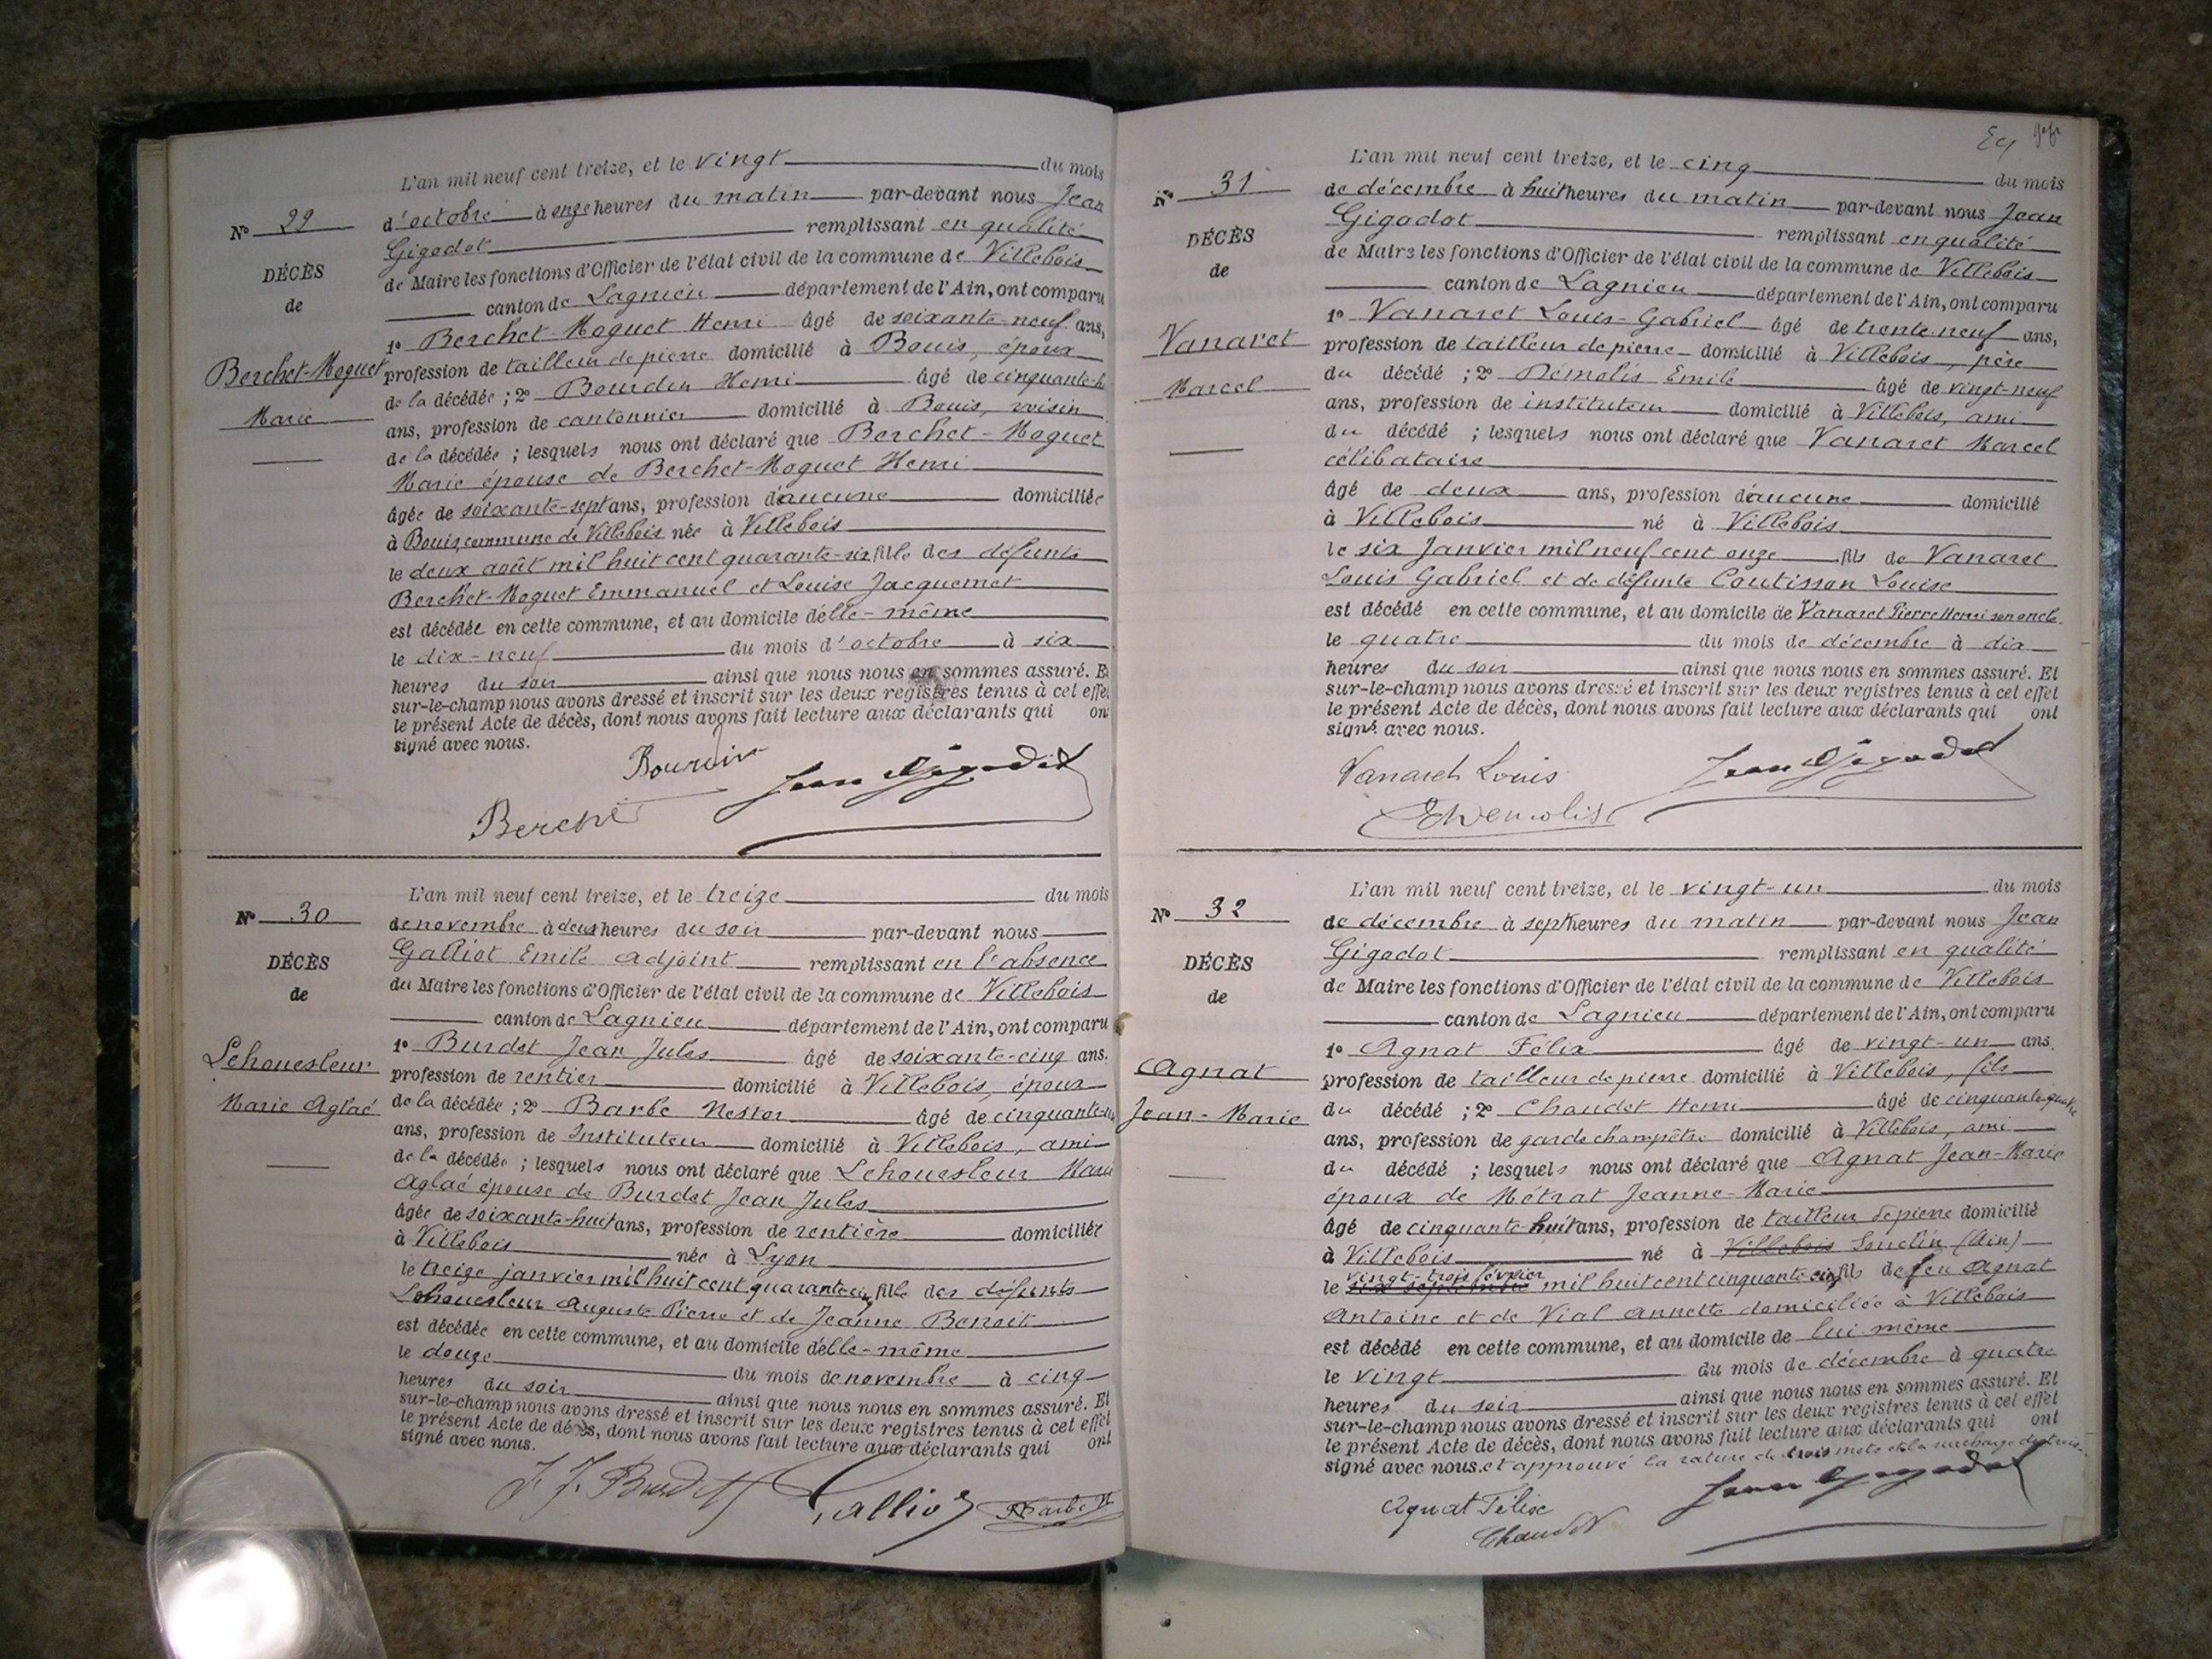 L'an mil neuf cent treize, et le vingt du mois
d'octobre à onze heures du matin par-devant nous Jean
Nº 29
Gigodot remplissant en qualité
DÉCÈS
de Maire les fonctions d'Officier de l'état civil de la commune de Villebois
de
canton de Lagnieu département de l'Ain, ont comparu
1º Berchet-Moguet Henri âgé de soixante-neuf ans,
Berchet-Moguet
profession de tailleur de pierre domicilié à Bouis, époux
Marie
de la décédée ; 2º Bourdin Henri âgé de cinquante-
ans, profession de cantonnier domicilié à Bouis, voisin
de la décédée ; lesquels nous ont déclaré que Berchet-Moguet
Marie épouse de Berchet-Moguet Henri
âgée de soixante-sept ans, profession d'aucune domiciliée
à Bouis, commune de Villebois née à Villebois
le deux août mil huit cent quarante-six fille des défunts
Berchet-Moguet Emmanuel et Louise Jacquemet
est décédée en cette commune, et au domicile d'elle-même
le dix-neuf du mois d'octobre à six
heures du soir ainsi que nous nous en sommes assuré. Et
sur-le-champ nous avons dressé et inscrit sur les deux registres tenus à cet effet
le présent Acte de décès, dont nous avons fait lecture aux déclarants qui on
signé avec nous.
Bourdin
Jean Gigodot
Berchet
L'an mil neuf cent treize, et le treize du mois
Nº 30
de novembre à deux heures du soir par-devant nous
Galliot Emile adjoint remplissant en l'absence
DÉCÈS
du Maire les fonctions d'Officier de l'état civil de la commune de Villebois
de
canton de Lagnieu département de l'Ain, ont comparu
1º Burdet Jean Jules âgé de soixante-cinq ans.
Lehouesleur
profession de rentier domicilié à Villebois, époux
Marie Aglaé
de la décédée ; 2º Barbe Nestor âgé de cinquante-
ans, profession de Instituteur domicilié à Villebois, ami
de la décédée ; lesquels nous ont déclaré que Lehouesleur Marie
Aglaé épouse de Burdet Jean Jules
âgée de soixante-huit ans, profession de rentière domiciliée
à Villebois née à Lyon
le treize janvier mil huit cent quarante cinq fille des défunts
Lehouesleur Auguste Pierre et de Jeanne Benoit
est décédée en cette commune, et au domicile d'elle-même
le douze du mois de novembre à cinq
heures du soir ainsi que nous nous en sommes assuré. Et
sur-le-champ nous avons dressé et inscrit sur les deux registres tenus à cet effet
le présent Acte de décès, dont nous avons fait lecture aux déclarants qui ont
signé avec nous.
J. J. Burdet Galliot Barbe N
L'an mil neuf cent treize, et le cinq du mois
Nº 31
de décembre à huit heures du matin par-devant nous Jean
Gigodot remplissant en qualité
DÉCÈS
de Maire les fonctions d'Officier de l'état civil de la commune de Villebois
de
canton de Lagnieu département de l'Ain, ont comparu
1º Vanaret Louis-Gabriel âgé de trente-neuf ans,
Vanaret
profession de tailleur de pierre domicilié à Villebois, père
Marcel
du décédé ; 2º Démolis Emile âgé de vingt-neuf
ans, profession de instituteur domicilié à Villebois, ami
du décédé ; lesquels nous ont déclaré que Vanaret Marcel
célibataire
âgé de deux ans, profession d'aucune domicilié
à Villebois né à Villebois
le six Janvier mil neuf cent onze fils de Vanaret
Louis Gabriel et de défunte Coutisson Louise
est décédé en cette commune, et au domicile de Vanaret Pierre Henri son oncle
le quatre du mois de décembre à dix
heures du soir ainsi que nous nous en sommes assuré. Et
sur-le-champ nous avons dressé et inscrit sur les deux registres tenus à cet effet
le présent Acte de décès, dont nous avons fait lecture aux déclarants qui ont
signé avec nous.
Vanaret Louis Jean Gigodot
EDemolis
L'an mil neuf cent treize, et le vingt-un du mois
Nº 32
de décembre à sept heures du matin par-devant nous Jean
Gigodot remplissant en qualité
DÉCÈS
de Maire les fonctions d'Officier de l'état civil de la commune de Villebois
de
canton de Lagnieu département de l'Ain, ont comparu
1º Agnat Félix âgé de vingt-un ans.
Agnat
profession de tailleur de pierre domicilié à Villebois, fils
Jean-Marie
du décédé ; 2º Chaudet Henri âgé de cinquante quatre
ans, profession de garde champêtre domicilié à Villebois, ami
du décédé ; lesquels nous ont déclaré que Agnat Jean-Marie
époux de Métrat Jeanne-Marie
âgé de cinquante-huit ans, profession de tailleur de pierre domicilié
à Villebois né à Villebois Souclin (Ain)
vingt-trois février
le six septembre mil huit cent cinquante cinq fils de feu Agnat
Antoine et de Vial Annette domiciliée à Villebois
est décédé en cette commune, et au domicile de lui-même
le vingt du mois de décembre à quatre
heures du soir ainsi que nous nous en sommes assuré. Et
sur-le-champ nous avons dressé et inscrit sur les deux registres tenus à cet effet
le présent Acte de décès, dont nous avons fait lecture aux déclarants qui ont
signé avec nous. et approuvé la rature de trois mots et la surcharge de trois
Jean Gigodot
Agnat Félix
Chaudet